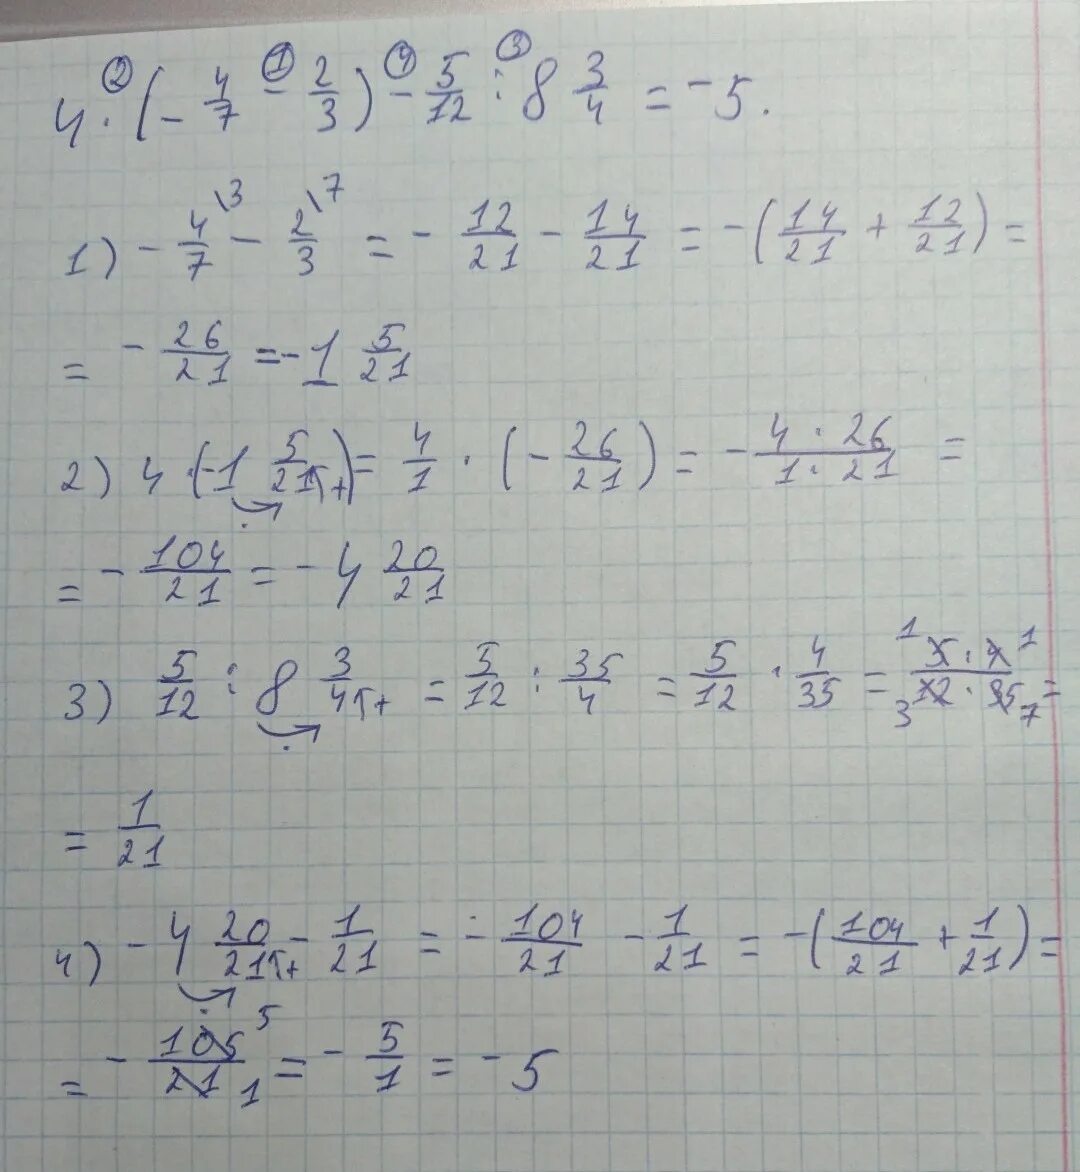 4 · ② (- 4/7 ① - 2/3) ④ - 5/12 ③ : 8 3/4 = -5.
1) - 4/7 \3 - 2/3 \7 = - 12/21 - 14/21 = -(14/21 + 12/21) =
= - 26/21 = -1 5/21
2) 4 · (-1 5/21 ↑+) = 4/1 · (- 26/21) = - 4 · 26/1 · 21 =
= - 104/21 = - 4 20/21
3) 5/12 : 8 3/4 ↑+ = 5/12 : 35/4 = 5/12 · 4/35 = 1 5 · 4 1/3 12 · 35 7 =
= 1/21
4) - 4 20/21 ↑+ - 1/21 = - 104/21 - 1/21 = -(104/21 + 1/21) =
= - 105 5/21 1 = - 5/1 = - 5